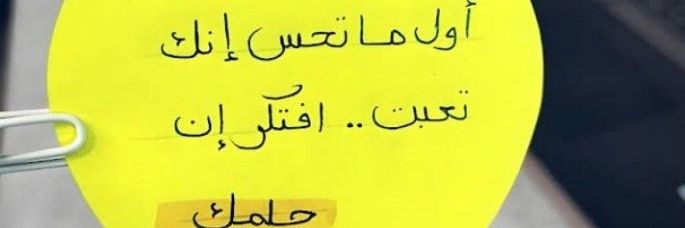 أول ما تحس إنك
تعبت .. افتكر إن
حلمك